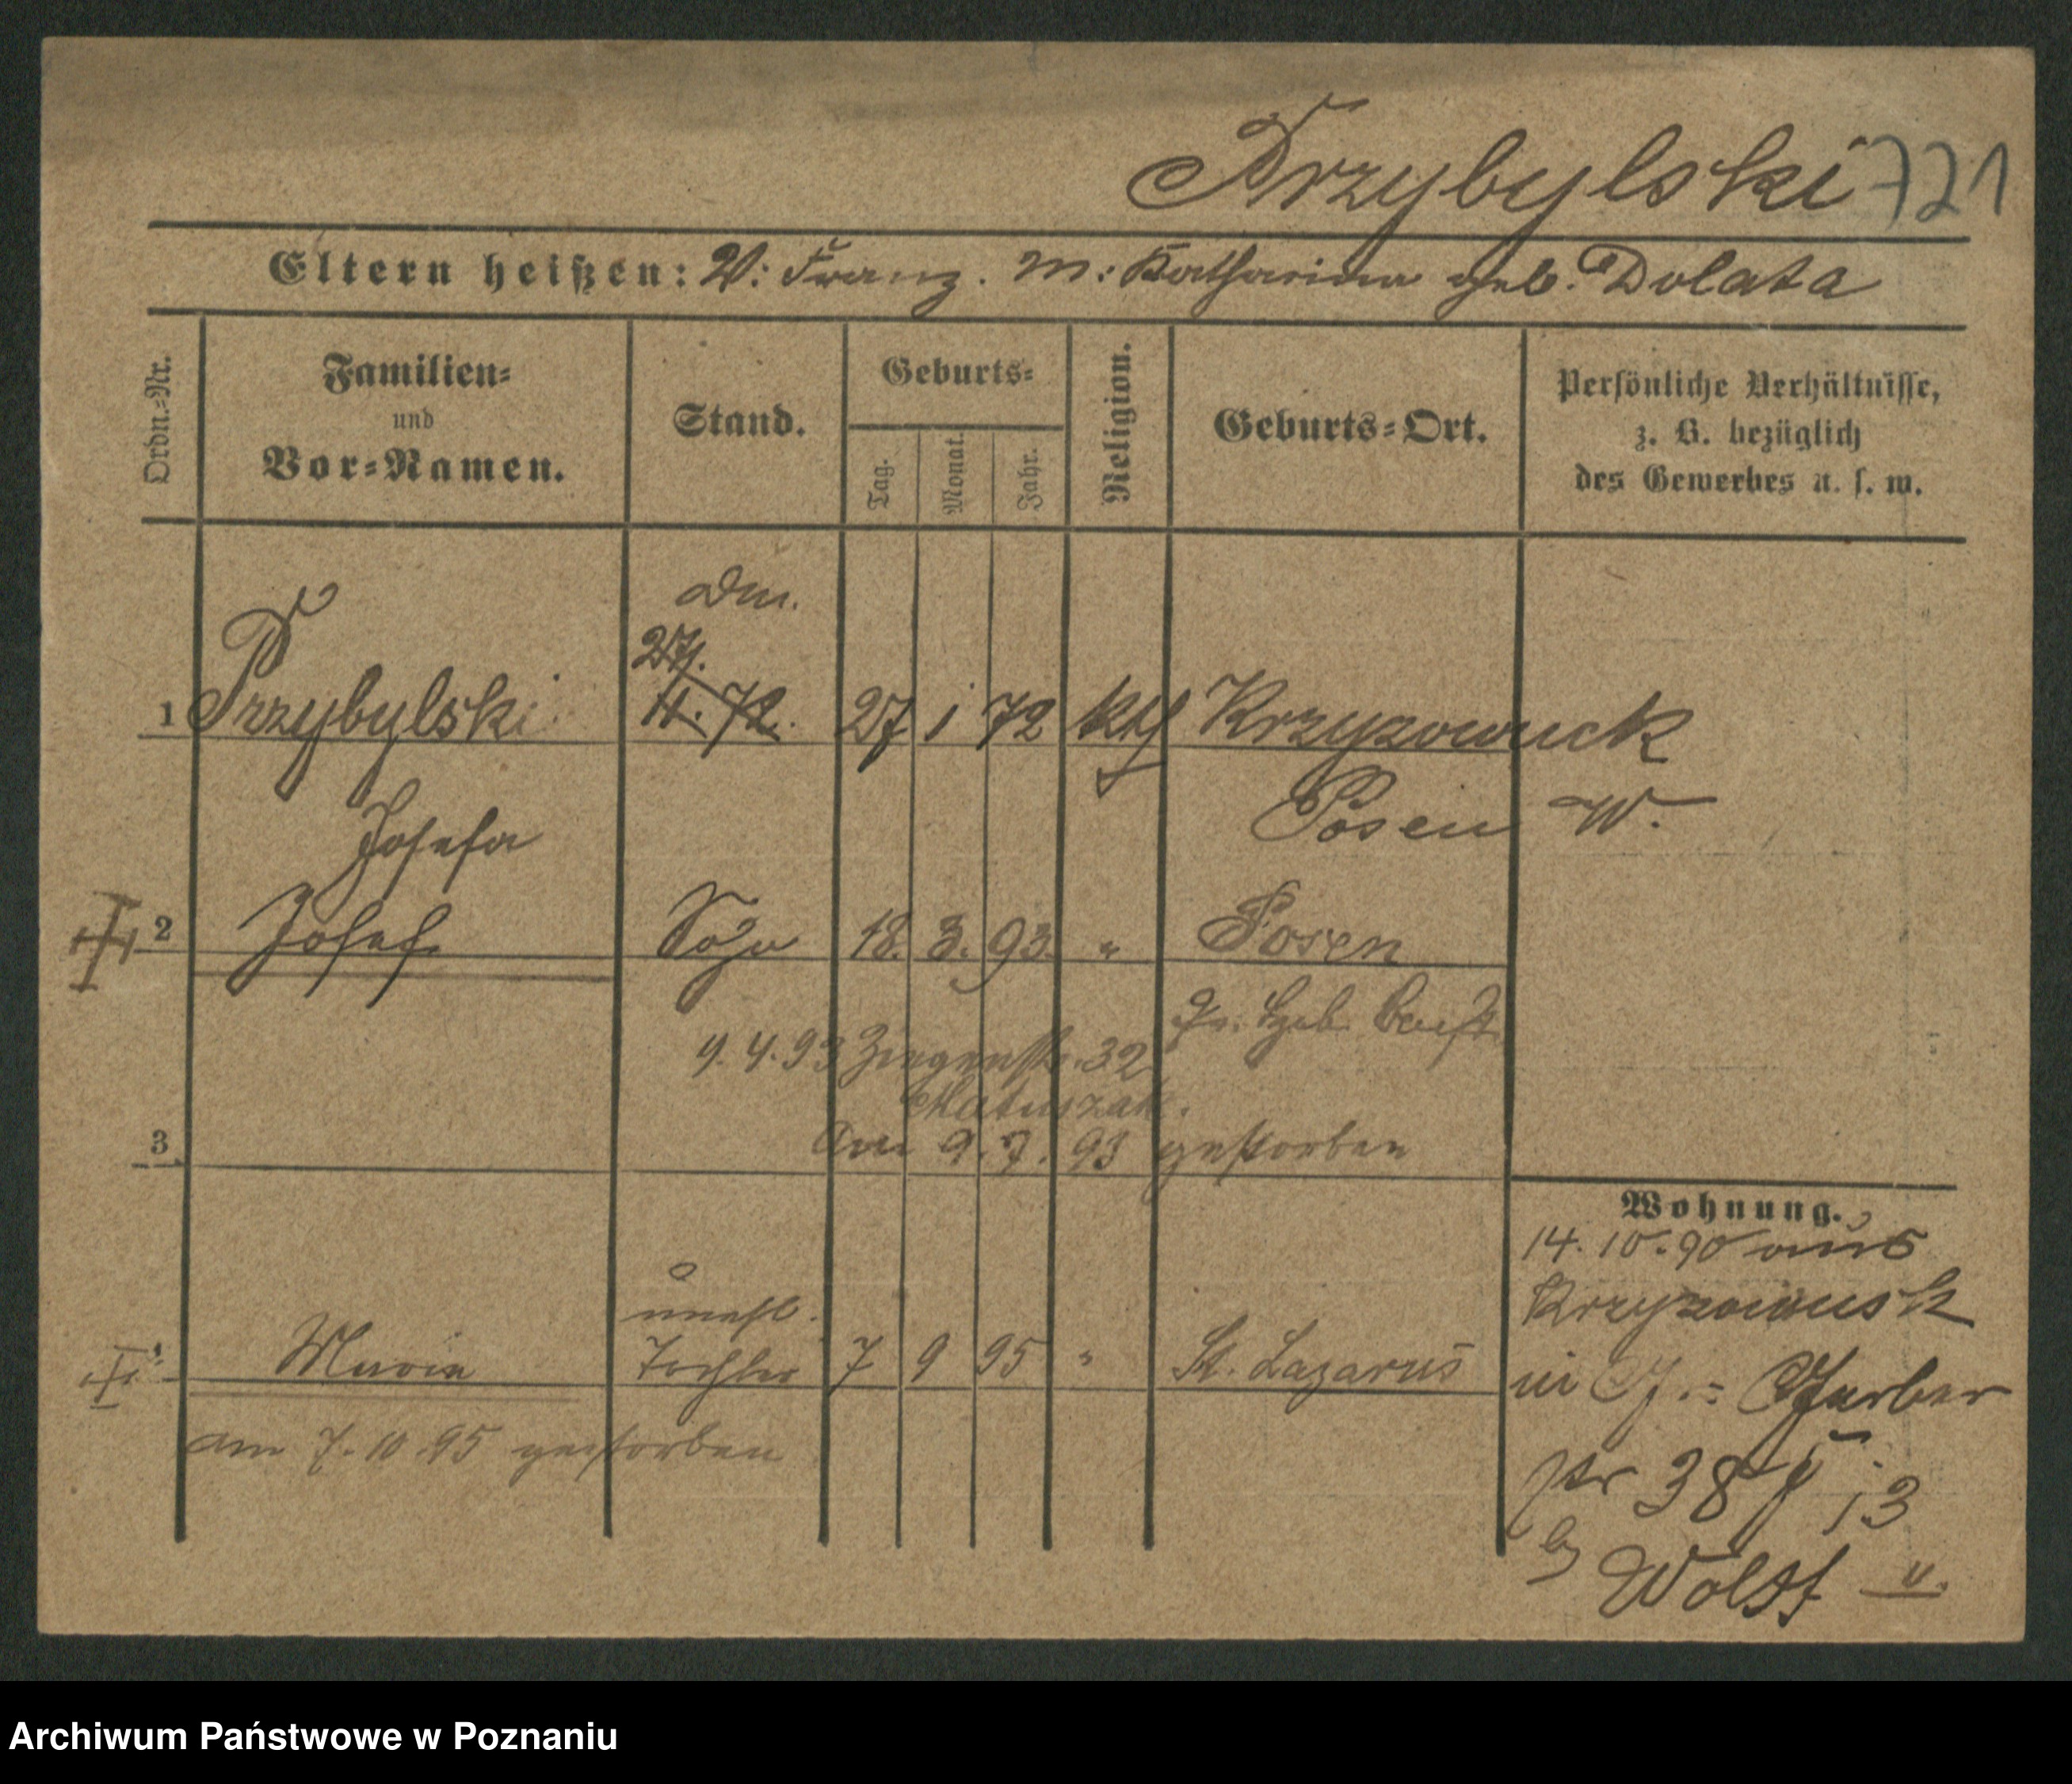 Przybylski 721
Eltern heißen: V: Franz. M: Katharina geb. Dolata
Ordn.-Nr.
Familien-
und
Vor-Namen.
Stand.
Geburts-
Tag.
Monat.
Jahr.
Religion.
Geburts-Ort.
Persönliche Verhältnisse,
z. B. bezüglich
des Gewerbes u. s. w.
27.
1 Przybylski 11. 72. 27 1 72 kth Krzyzownick
Josefa Posen W.
2 Josef Sohn 18. 3. 93. " Posen
9. 4. 93 Ziegenstr. 32
Matuszak.
3 am 9. 7. 93 gestorben
Wohnung.
14. 10. 90 aus
unehl.
Maria Tochter 7 9 95 " St. Lazarus
am 7. 10 95 gestorben
in
38
b/
Wolff